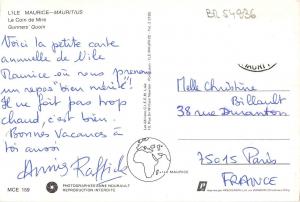 L'ILE MAURICE-MAURITIUS
Le Coin de Mire
Gunners' Quoin
BR 54936
Voici la petite carte
annuelle de l'île
Maurice où nous prenons
un repos bien mérité!
Il ne fait pas trop
chaud, c'est bien.
Bonnes Vacances à
toi aussi
Annie
Melle Christine
Billault
38 rue Dursanton
75015 Paris
FRANCE
ILE MAURICE
MCE 159
PHOTOGRAPHIES
REPRODUCTION INTERDITE